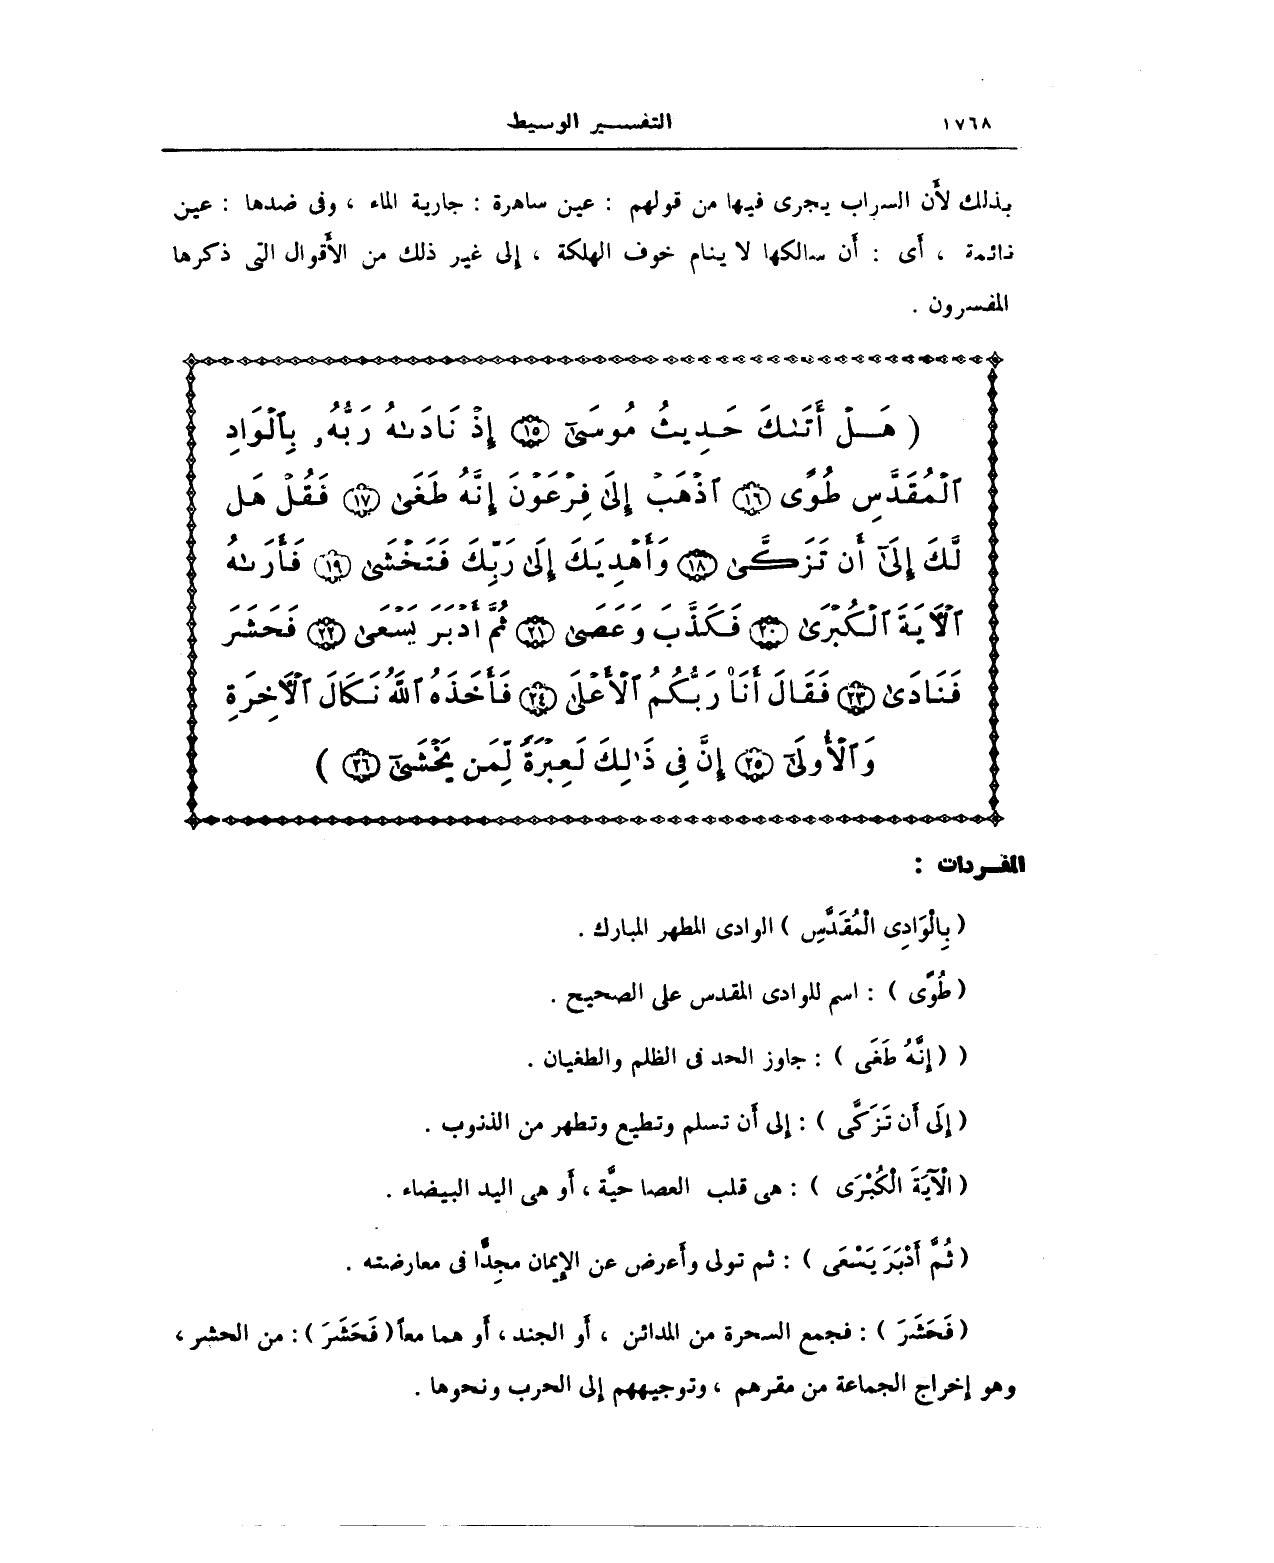 ١٧٦٨ التفسير الوسيط
بذلك لأَن السراب يجرى فيها من قولهم : عين ساهرة : جارية الماء ، وفى ضدها : عين
نائمة ، أَى : أَن سالكها لا ينام خوف الهلكة ، إلى غير ذلك من الأَقوال التى ذكرها
المفسرون .
( هَلْ أَتَىٰكَ حَدِيثُ مُوسَىٰٓ ١٥ إِذْ نَادَىٰهُ رَبُّهُۥ بِٱلْوَادِ
ٱلْمُقَدَّسِ طُوًى ١٦ ٱذْهَبْ إِلَىٰ فِرْعَوْنَ إِنَّهُۥ طَغَىٰ ١٧ فَقُلْ هَل
لَّكَ إِلَىٰٓ أَن تَزَكَّىٰ ١٨ وَأَهْدِيَكَ إِلَىٰ رَبِّكَ فَتَخْشَىٰ ١٩ فَأَرَىٰهُ
ٱلْأٓيَةَ ٱلْكُبْرَىٰ ٢٠ فَكَذَّبَ وَعَصَىٰ ٢١ ثُمَّ أَدْبَرَ يَسْعَىٰ ٢٢ فَحَشَرَ
فَنَادَىٰ ٢٣ فَقَالَ أَنَا۠ رَبُّكُمُ ٱلْأَعْلَىٰ ٢٤ فَأَخَذَهُ ٱللَّهُ نَكَالَ ٱلْأٓخِرَةِ
وَٱلْأُولَىٰٓ ٢٥ إِنَّ فِى ذَٰلِكَ لَعِبْرَةً لِّمَن يَخْشَىٰٓ ٢٦ )
المفـردات :
( بِالْوَادِى الْمُقَدَّسِ ) الوادى المطهر المبارك .
( طُوًى ) : اسم للوادى المقدس على الصحيح .
( ( إِنَّهُ طَغَى ) : جاوز الحد فى الظلم والطغيان .
( إِلَى أَن تَزَكَّى ) : إلى أَن تسلم وتطيع وتطهر من الذنوب .
( الْآيَةَ الْكُبْرَى ) : هى قلب العصا حيَّة ، أَو هى اليد البيضاء .
( ثُمَّ أَدْبَرَ يَسْعَى ) : ثم تولى وأَعرض عن الإِيمان مجدًّا فى معارضته .
( فَحَشَرَ ) : فجمع السحرة من المدائن ، أَو الجند ، أَو هما معاً ( فَحَشَرَ ) : من الحشر ،
وهو إخراج الجماعة من مقرهم ، وتوجيههم إلى الحرب ونحوها .